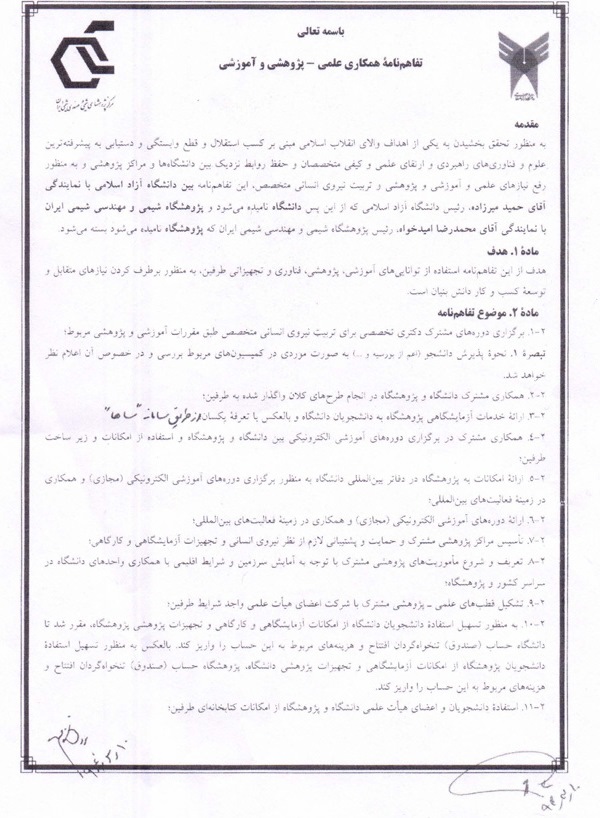 باسمه تعالی
تفاهم‌نامهٔ همکاری علمی – پژوهشی و آموزشی
مقدمه
به منظور تحقق بخشیدن به یکی از اهداف والای انقلاب اسلامی مبنی بر کسب استقلال و قطع وابستگی و دستیابی به پیشرفته‌ترین
علوم و فناوری‌های راهبردی و ارتقای علمی و کیفی متخصصان و حفظ روابط نزدیک بین دانشگاه‌ها و مراکز پژوهشی و به منظور
رفع نیازهای علمی و آموزشی و پژوهشی و تربیت نیروی انسانی متخصص، این تفاهم‌نامه بین دانشگاه آزاد اسلامی با نمایندگی
آقای حمید میرزاده، رئیس دانشگاه آزاد اسلامی که از این پس دانشگاه نامیده می‌شود و پژوهشگاه شیمی و مهندسی شیمی ایران
با نمایندگی آقای محمدرضا امیدخواه، رئیس پژوهشگاه شیمی و مهندسی شیمی ایران که پژوهشگاه نامیده می‌شود بسته می‌شود.
مادهٔ ۱. هدف
هدف از این تفاهم‌نامه استفاده از توانایی‌های آموزشی، پژوهشی، فناوری و تجهیزاتی طرفین، به منظور برطرف کردن نیازهای متقابل و
توسعهٔ کسب و کار دانش بنیان است.
مادهٔ ۲. موضوع تفاهم‌نامه
۲-۱. برگزاری دوره‌های مشترک دکتری تخصصی برای تربیت نیروی انسانی متخصص طبق مقررات آموزشی و پژوهشی مربوط؛
تبصرهٔ ۱. نحوهٔ پذیرش دانشجو (اعم از بورسیه و ...) به صورت موردی در کمیسیون‌های مربوط بررسی و در خصوص آن اعلام نظر
خواهد شد.
۲-۲. همکاری مشترک دانشگاه و پژوهشگاه در انجام طرح‌های کلان واگذار شده به طرفین؛
۲-۳. ارائهٔ خدمات آزمایشگاهی پژوهشگاه به دانشجویان دانشگاه و بالعکس با تعرفهٔ یکسان و از طریق سامانه "ساها"
۲-۴. همکاری مشترک در برگزاری دوره‌های آموزشی الکترونیکی بین دانشگاه و پژوهشگاه و استفاده از امکانات و زیر ساخت
طرفین؛
۲-۵. ارائهٔ امکانات به پژوهشگاه در دفاتر بین‌المللی دانشگاه به منظور برگزاری دوره‌های آموزش الکترونیکی (مجازی) و همکاری
در زمینهٔ فعالیت‌های بین‌المللی؛
۲-۶. ارائهٔ دوره‌های آموزشی الکترونیکی (مجازی) و همکاری در زمینهٔ فعالیت‌های بین‌المللی؛
۲-۷. تأسیس مراکز پژوهشی مشترک و حمایت و پشتیبانی لازم از نظر نیروی انسانی و تجهیزات آزمایشگاهی و کارگاهی؛
۲-۸. تعریف و شروع مأموریت‌های پژوهشی مشترک با توجه به آمایش سرزمین و شرایط اقلیمی با همکاری واحدهای دانشگاه در
سراسر کشور و پژوهشگاه؛
۲-۹. تشکیل قطب‌های علمی – پژوهشی مشترک با شرکت اعضای هیأت علمی واجد شرایط طرفین؛
۲-۱۰. به منظور تسهیل استفادهٔ دانشجویان دانشگاه از امکانات آزمایشگاهی و کارگاهی و تجهیزات پژوهشی پژوهشگاه، مقرر شد تا
دانشگاه حساب (صندوق) تنخواه‌گردان افتتاح و هزینه‌های مربوط به این حساب را واریز کند. بالعکس به منظور تسهیل استفادهٔ
دانشجویان پژوهشگاه از امکانات آزمایشگاهی و تجهیزات پژوهشی دانشگاه، پژوهشگاه حساب (صندوق) تنخواه‌گردان افتتاح و
هزینه‌های مربوط به این حساب را واریز کند.
۲-۱۱. استفادهٔ دانشجویان و اعضای هیأت علمی دانشگاه و پژوهشگاه از امکانات کتابخانه‌ای طرفین؛